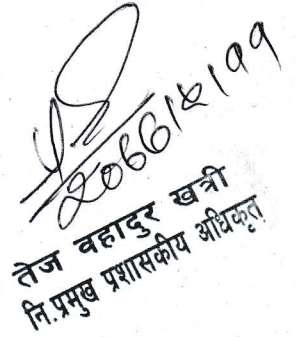 २०६६।४।११
तेज वहादुर खत्री
नि.प्रमुख प्रशासकीय अधिकृत